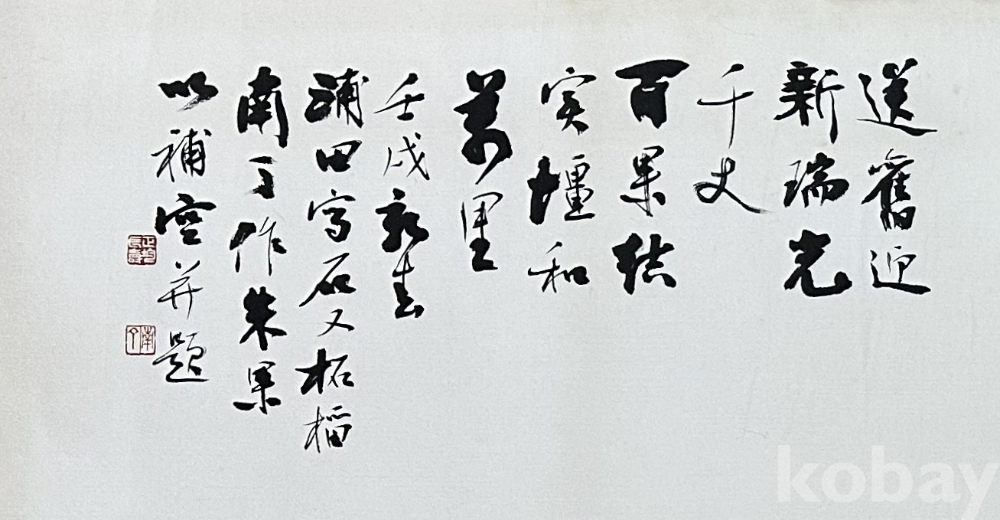 送舊迎
新瑞光
千丈
百果結
实壃和
萬里
壬戌新春
浦田写石又柘榴
南丁作朱果
以補空并題
南丁
kobay